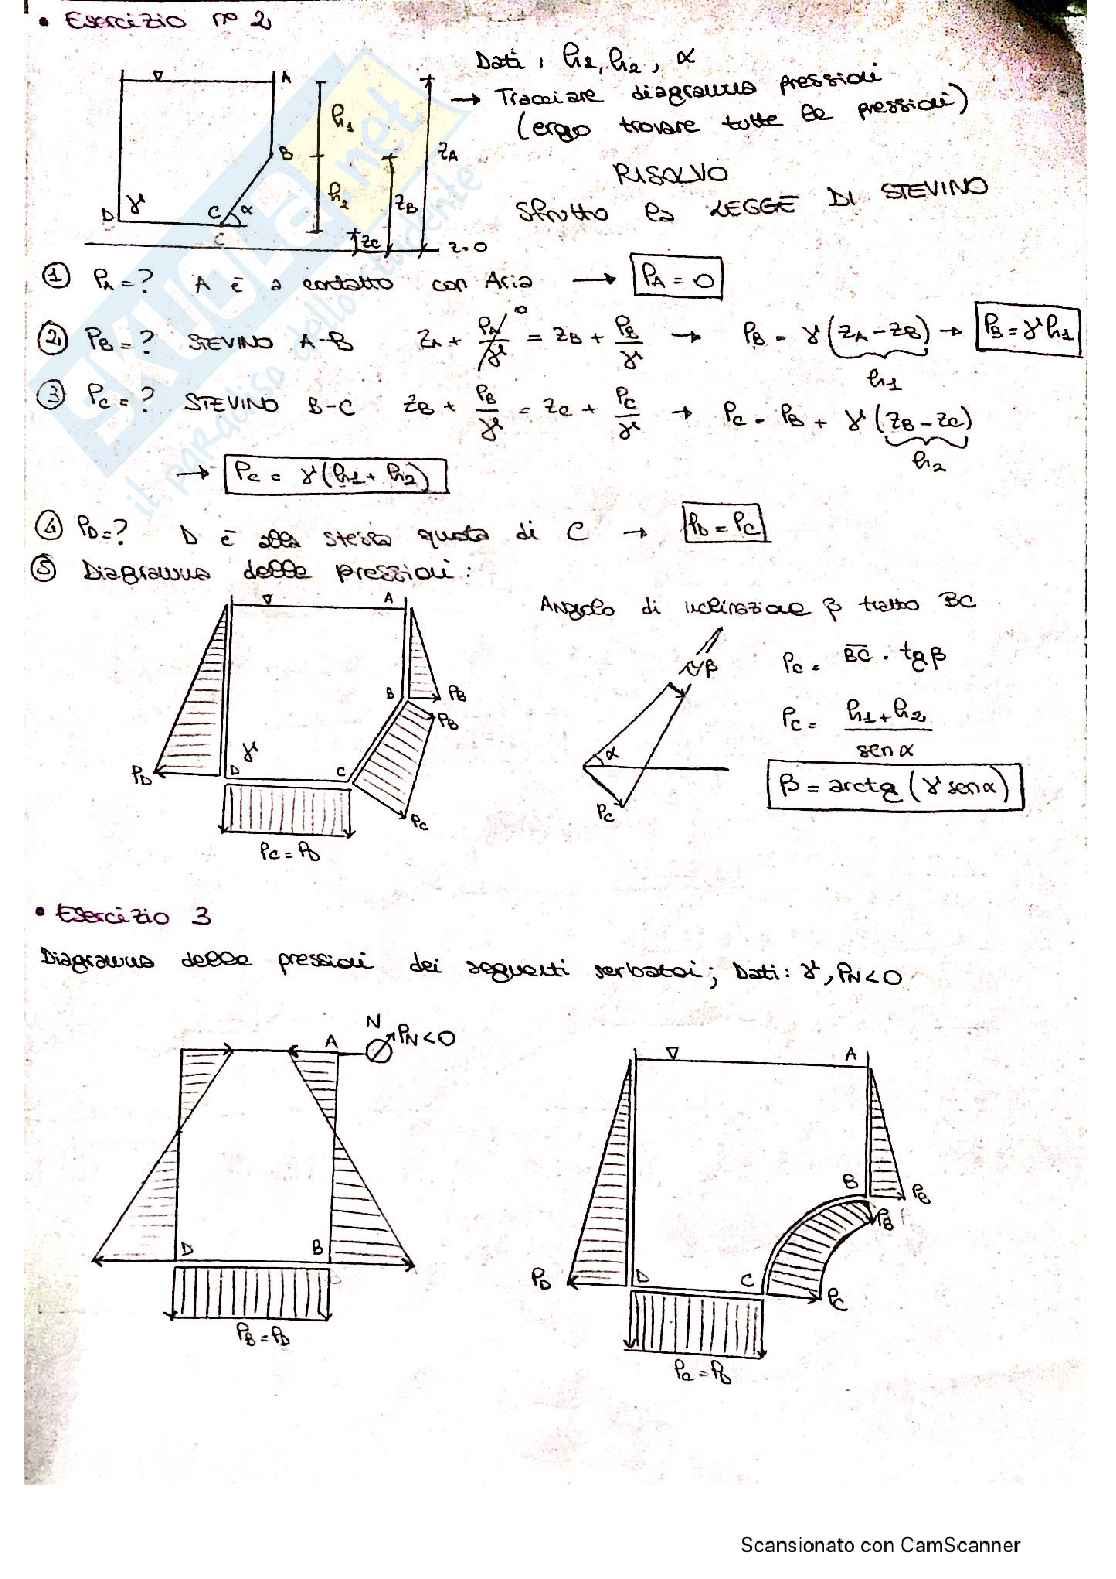 • Esercizio n° 2
Dati: h1, h2, α
→ Tracciare diagramma pressioni
(ergo trovare tutte le pressioni)
RISOLVO
Sfrutto la LEGGE DI STEVINO
A
h1
B
zA
h2
zB
D γ C α
C
zC z=0
① PA = ? A è a contatto con Aria → PA = 0
② PB = ? STEVINO A-B zA + PA/γ 0 = zB + PB/γ → PB = γ(zA - zB) → PB = γh1
h1
③ PC = ? STEVINO B-C zB + PB/γ = zC + PC/γ → PC = PB + γ(zB - zC)
h2
→ PC = γ(h1 + h2)
④ PD = ? D è alla stessa quota di C → PD = PC
⑤ Diagramma delle pressioni:
A
B PB
PB
γ
PD D C
PC
PC = PD
Angolo di inclinazione β tratto BC
β
PC = BC · tgβ
α
PC = h1 + h2 / sen α
PC
β = arctg (γ sen α)
• Esercizio 3
Diagramma delle pressioni dei seguenti serbatoi; Dati: γ, PN<0
N
A PN<0
D B
PB = PD
A
B PB
PB
PD D C PC
PC = PD
Scansionato con CamScanner
SKUOLA.net
il paradiso dello studente